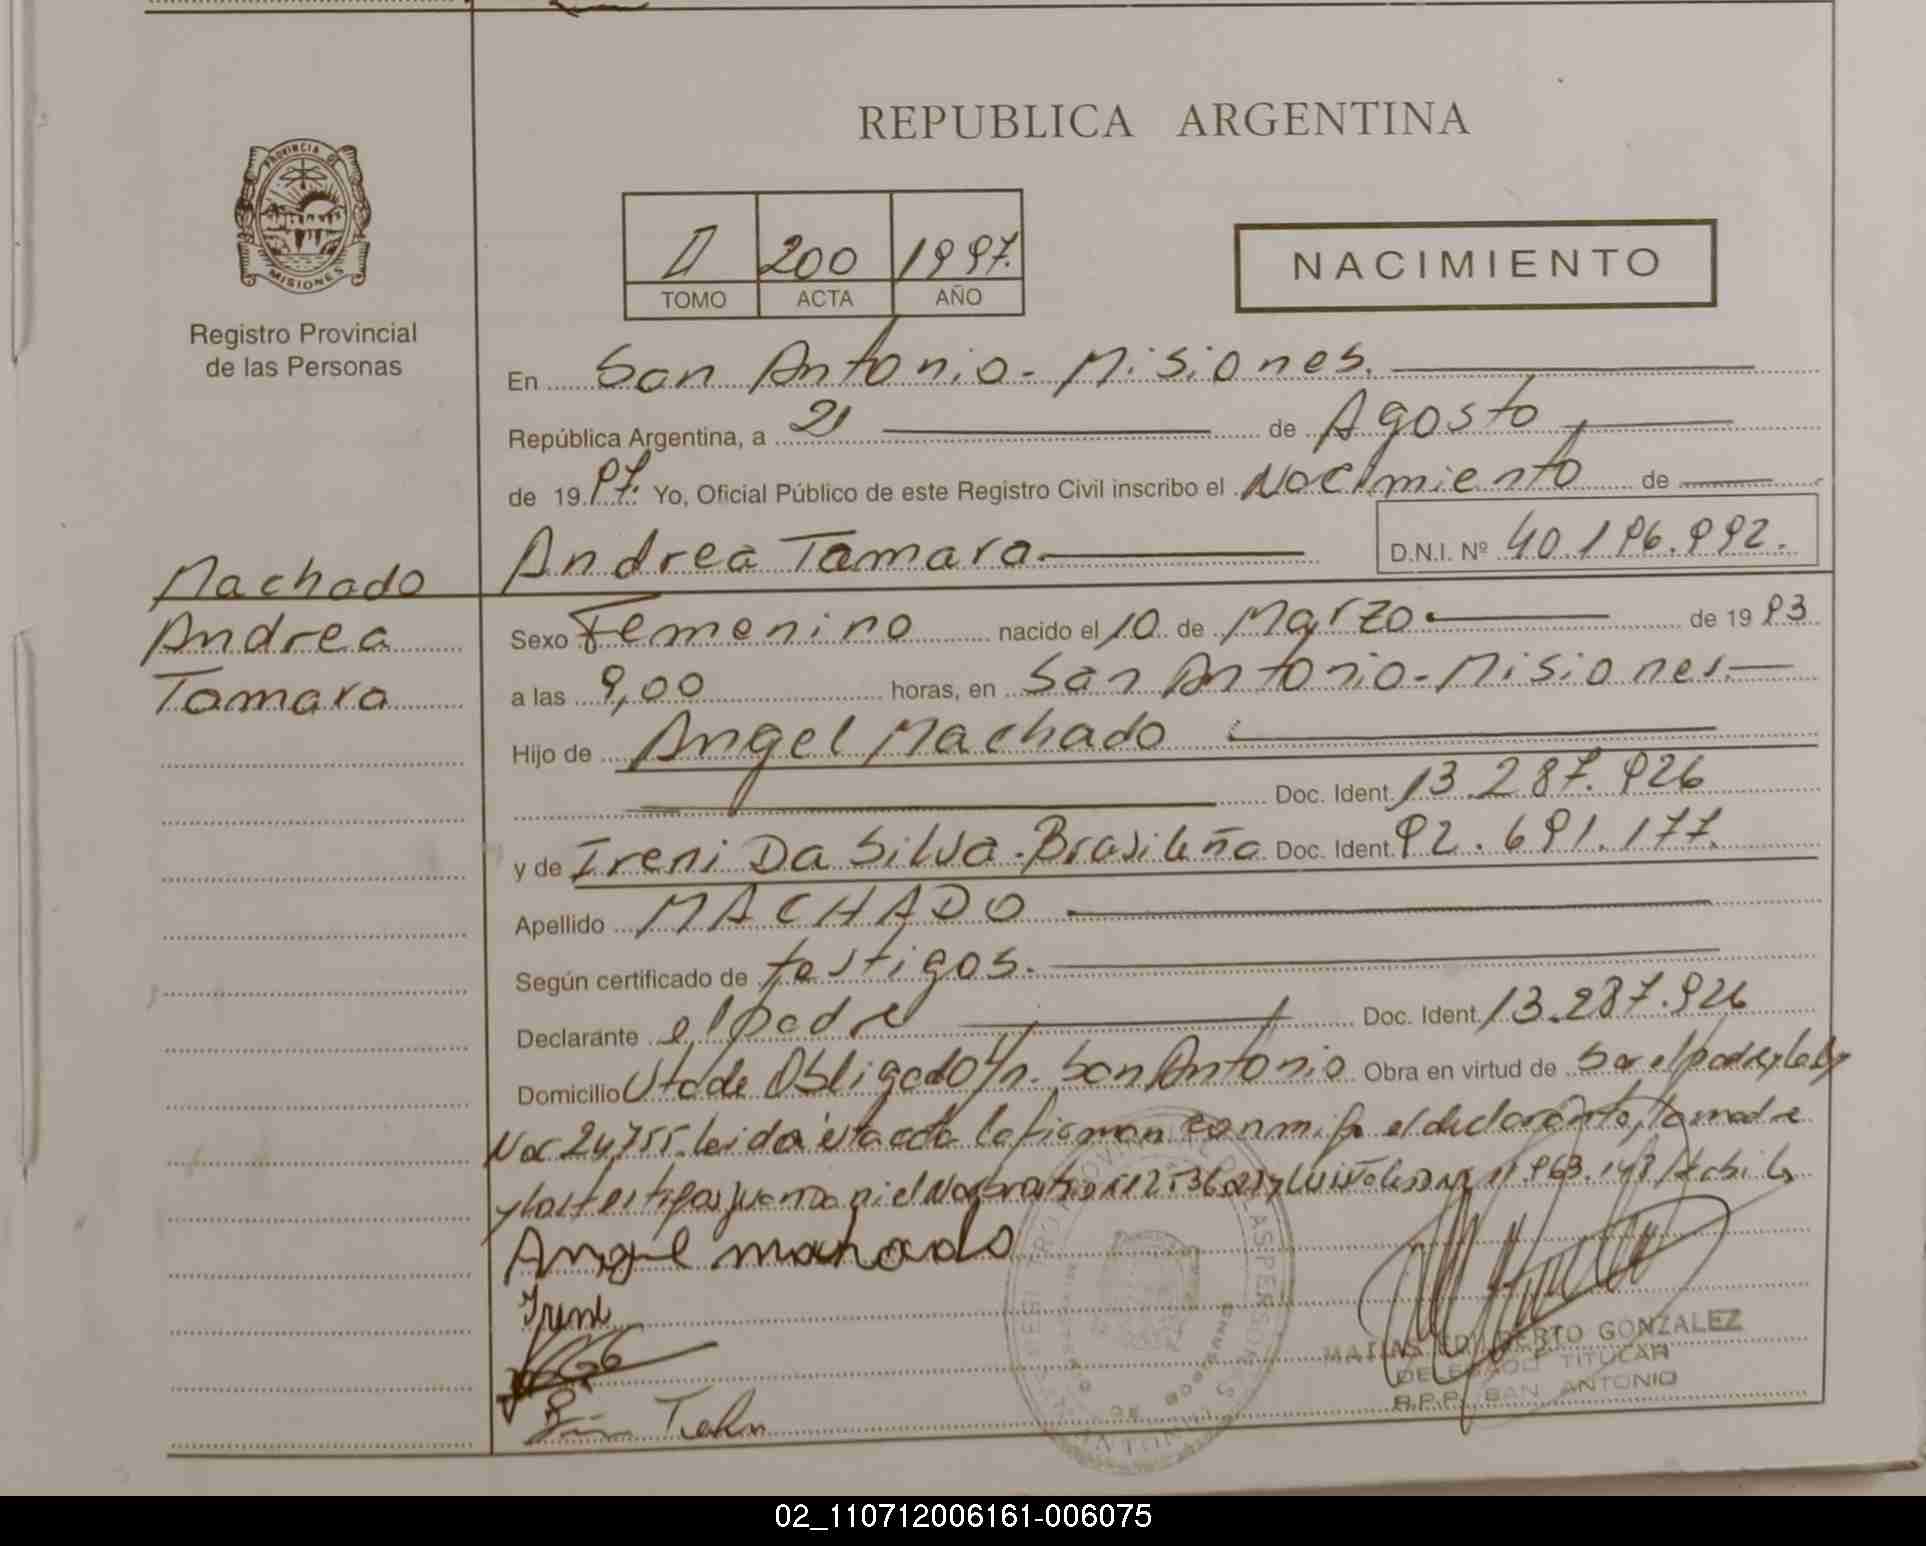 REPUBLICA ARGENTINA
PROVINCIA DE
MISIONES
Registro Provincial
de las Personas
II 200 1997.
TOMO ACTA AÑO
NACIMIENTO
En San Antonio - Misiones.
República Argentina, a 21 de Agosto
de 1997. Yo, Oficial Público de este Registro Civil inscribo el Nacimiento de
Andrea Tamara D.N.I. Nº 40.196.992.
Machado
Andrea
Tamara
Sexo Femenino nacido el 10 de Marzo de 1993
a las 9,00 horas, en San Antonio - Misiones.
Hijo de Angel Machado
Doc. Ident. 13.287.926
y de Ireni Da Silva. Brasileña Doc. Ident. 92.691.177.
Apellido MACHADO
Según certificado de testigos.
Declarante el padre Doc. Ident. 13.287.926
Domicilio Vta de Obligado s/n. San Antonio Obra en virtud de Ser el padre y Ley
Nac 24755. Leida esta acta la firman conmigo el declarante, la madre
y los testigos
Angel machado
Ireni
MATIAS EDILBERTO GONZALEZ
DELEGADO TITULAR
R.P.P. SAN ANTONIO
02_110712006161-006075